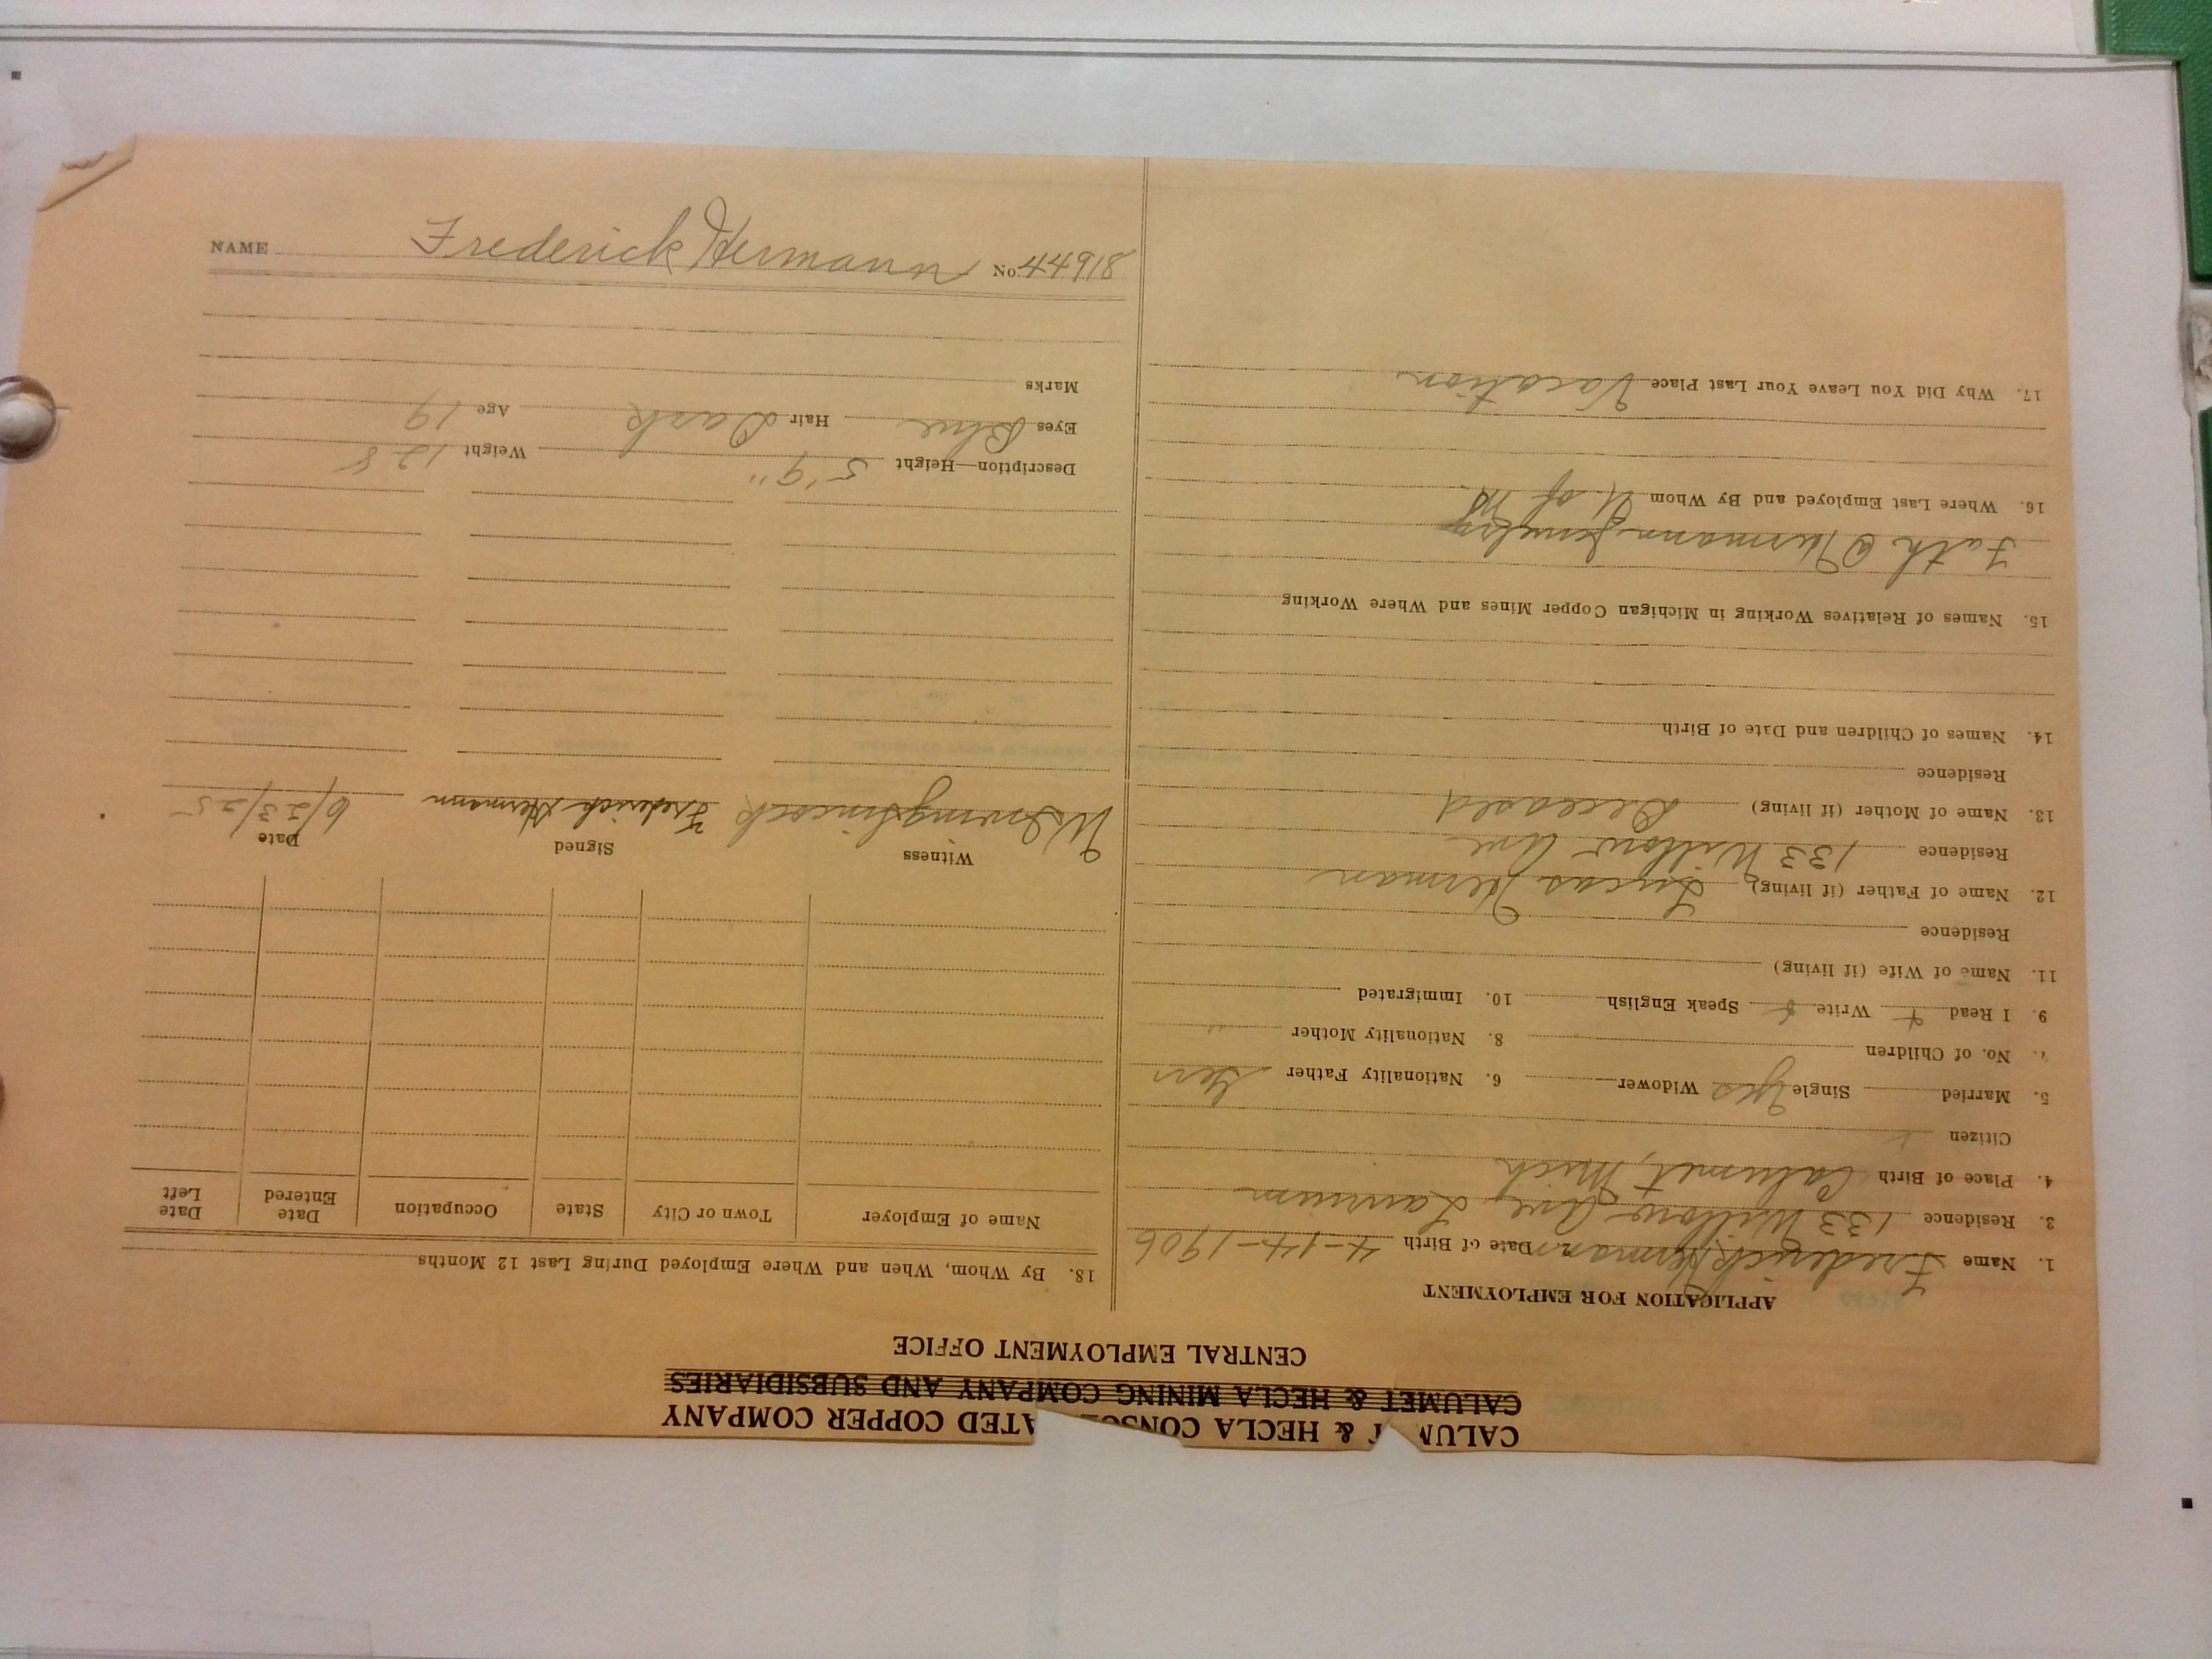 CALUM T & HECLA CONSOL ATED COPPER COMPANY
CALUMET & HECLA MINING COMPANY AND SUBSIDIARIES
CENTRAL EMPLOYMENT OFFICE
APPLICATION FOR EMPLOYMENT
1. Name Frederick Hermann 2. Date of Birth 4-14-1906
3. Residence 133 Willow Ave, Laurium
4. Place of Birth Calumet, Mich
Citizen
5. Married Single Yes Widower 6. Nationality Father Ger
7. No. of Children 8. Nationality Mother "
9. I Read Write Speak English 10. Immigrated
11. Name of Wife (if living)
Residence
12. Name of Father (if living) Lucas Herman
Residence 133 Willow Ave
13. Name of Mother (if living) Deceased
Residence
14. Names of Children and Date of Birth
15. Names of Relatives Working in Michigan Copper Mines and Where Working
Fath @ Hermann Jewelry
16. Where Last Employed and By Whom U of M
17. Why Did You Leave Your Last Place Vacation
18. By Whom, When and Where Employed During Last 12 Months
Name of Employer Town or City State Occupation Date Entered Date Left
Witness Signed Date
Frederick Hermann 6/23/25
Description—Height 5'9" Weight 128
Eyes Blue Hair Dark Age 19
Marks
NAME Frederick Hermann No. 44918